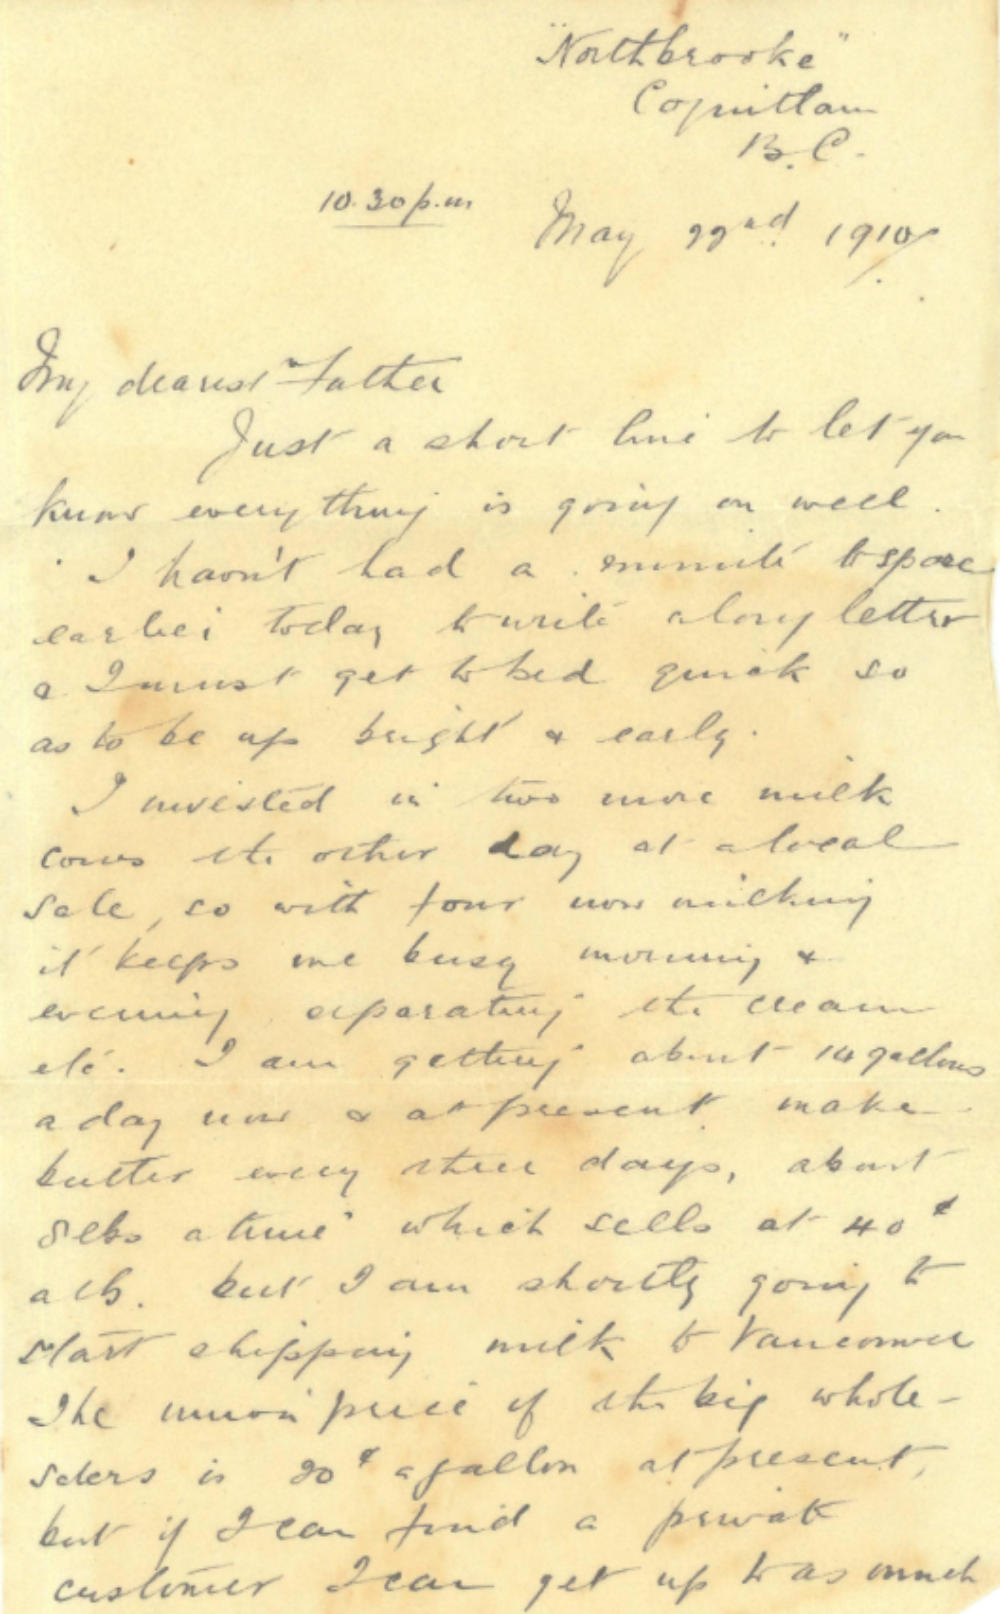 "Northbrooke"
Coquitlam
B.C.
10.30 p.m
May 22nd 1910
My dearest Father
Just a short line to let you
know everything is going on well.
I havn't had a minute to spare
earlier today to write a long letter
& I must get to bed quick so
as to be up bright & early.
I invested in two more milk
cows the other day at a local
sale, so with four now milking
it keeps me busy morning &
evening separating the cream
etc. I am getting about 14 gallons
a day now & at present make
butter every three days, about
8 lbs a time which sells at 40¢
a lb. but I am shortly going to
start shipping milk to Vancouver
The union price of the big whole-
salers is 20¢ a gallon at present,
but if I can find a private
customer I can get up to as much